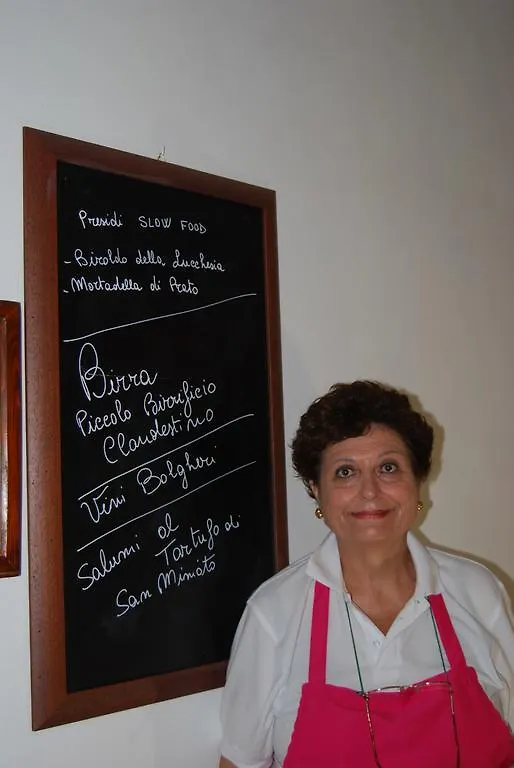 Presidi SLOW FOOD
- Biroldo della Lucchesia
- Mortadella di Prato
Birra
Piccolo Birrificio
Clandestino
Vini Bolgheri
Salumi al
Tartufo di
San Miniato